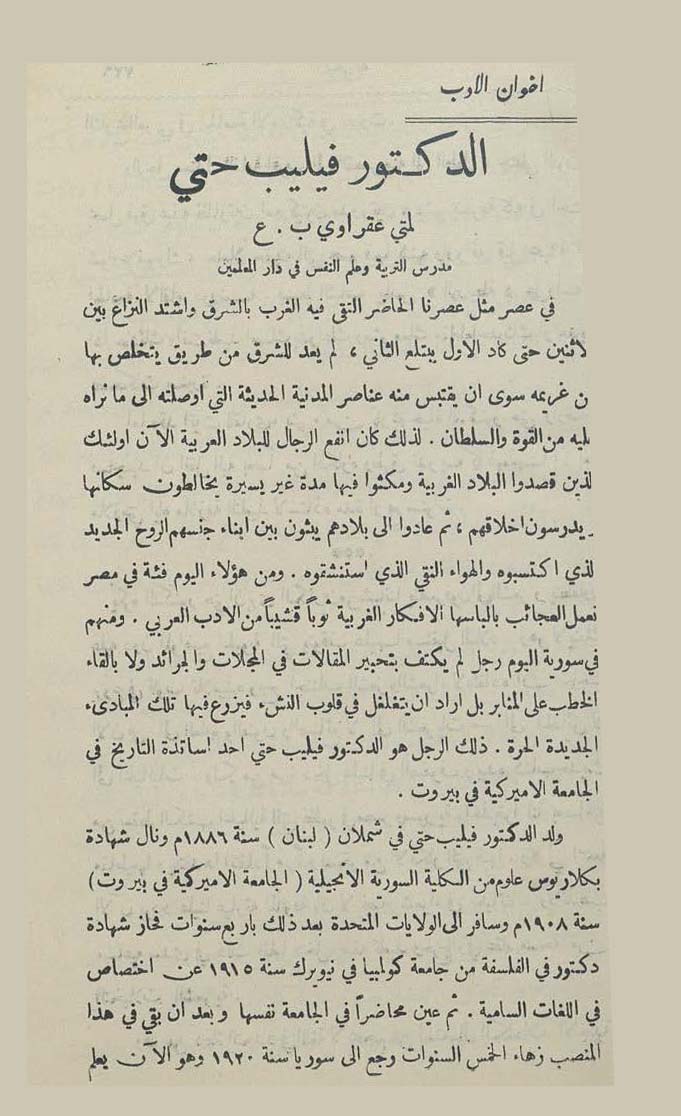 اخوان الادب
الدكتور فيليب حتي
لمتي عقراوي ب . ع
مدرس التربية وعلم النفس في دار المعلمين
في عصر مثل عصرنا الحاضر التقى فيه الغرب بالشرق واشتد النزاع بين
لاثنين حتى كاد الاول يبتلع الثاني ، لم يعد للشرق من طريق يتخلص بها
ن غريمه سوى ان يقتبس منه عناصر المدنية الحديثة التي اوصلته الى ما نراه
ليه من القوة والسلطان . لذلك كان انفع الرجال للبلاد العربية الآن اولئك
لذين قصدوا البلاد الغربية ومكثوا فيها مدة غير يسيرة يخالطون سكانها
يدرسون اخلاقهم ، ثم عادوا الى بلادهم يبثون بين ابناء جنسهم الروح الجديد
لذي اكتسبوه والهواء النقي الذي استنشقوه . ومن هؤلاء اليوم فئة في مصر
تعمل العجائب بالباسها الافكار الغربية ثوباً قشيباً من الادب العربي . ومنهم
في سورية اليوم رجل لم يكتف بتحبير المقالات في المجلات والجرائد ولا بالقاء
الخطب على المنابر بل اراد ان يتغلغل في قلوب النشء فيزرع فيها تلك المبادىء
الجديدة الحرة . ذلك الرجل هو الدكتور فيليب حتي احد اساتذة التاريخ في
الجامعة الاميركية في بيروت .
ولد الدكتور فيليب حتي في شملان ( لبنان ) سنة ١٨٨٦م ونال شهادة
بكلاريوس علوم من الكلية السورية الانجيلية ( الجامعة الاميركية في بيروت )
سنة ١٩٠٨م وسافر الى الولايات المتحدة بعد ذلك باربع سنوات فحاز شهادة
دكتور في الفلسفة من جامعة كولمبيا في نيويرك سنة ١٩١٥ عن اختصاص
في اللغات السامية . ثم عين محاضراً في الجامعة نفسها وبعد ان بقي في هذا
المنصب زهاء الخمس السنوات رجع الى سوريا سنة ١٩٢٠ وهو الآن يعلم